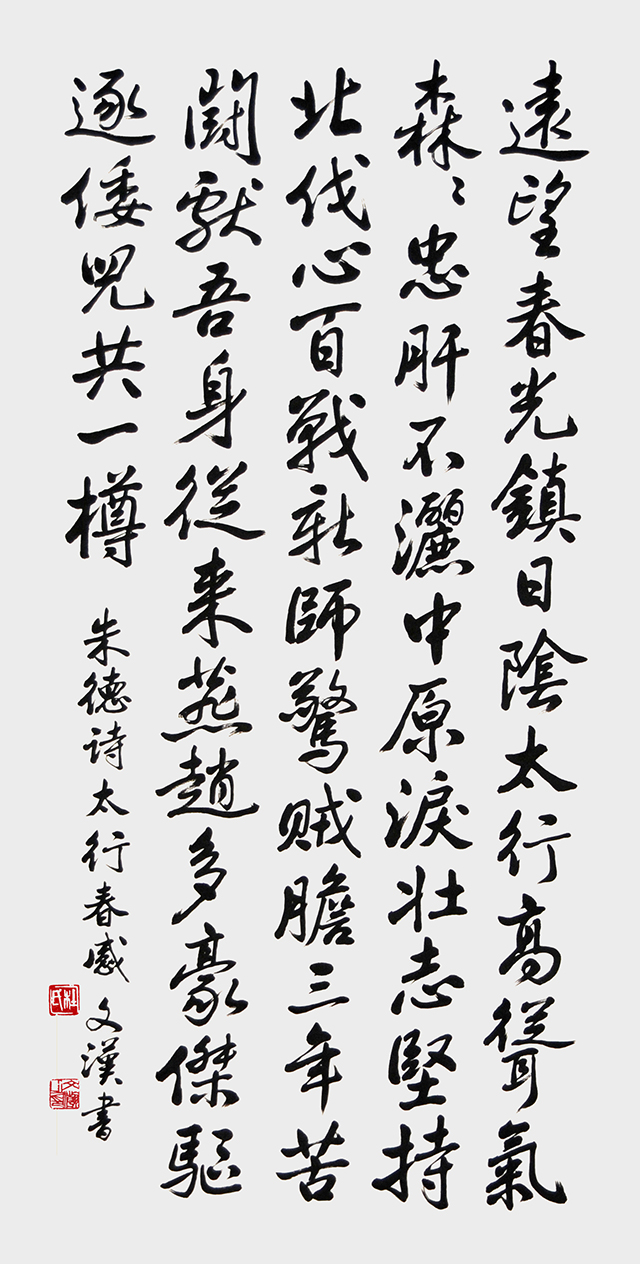 遠望春光鎮日陰太行高聳氣
森々忠肝不灑中原淚壯志堅持
北伐心百戰新師驚賊膽三年苦
鬪獻吾身從来燕趙多豪傑驅
逐倭児共一樽
朱德诗太行春感 文漢書
杜氏